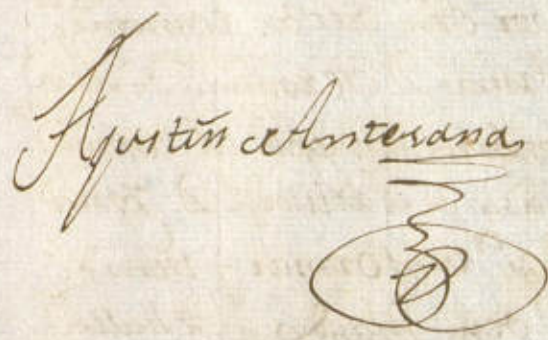 Agustín de Antesana